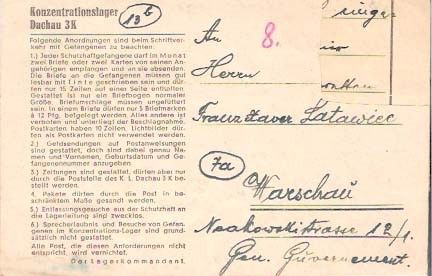 Konzentrationslager
Dachau 3K
13b
Folgende Anordnungen sind beim Schriftver-
kehr mit Gefangenen zu beachten:
1.) Jeder Schutzhaftgefangene darf im Monat
zwei Briefe oder zwei Karten von seinen An-
gehörigen empfangen und an sie absenden.
Die Briefe an die Gefangenen müssen gut
lesbar mit Tinte geschrieben sein und dür-
fen nur 15 Zeilen auf einer Seite enthalten.
Gestattet ist nur ein Briefbogen normaler
Größe. Briefumschläge müssen ungefüttert
sein. In einem Briefe dürfen nur 5 Briefmarken
à 12 Pfg. beigelegt werden. Alles andere ist
verboten und unterliegt der Beschlagnahme.
Postkarten haben 10 Zeilen. Lichtbilder dür-
fen als Postkarten nicht verwendet werden.
2.) Geldsendungen auf Postanweisungen
sind gestattet, doch sind dabei genau Na-
men und Vornamen, Geburtsdatum und Ge-
fangenennummer anzugeben.
3.) Zeitungen sind gestattet, dürfen aber nur
durch die Poststelle des K. L. Dachau 3K be-
stellt werden.
4.) Pakete dürfen durch die Post in be-
schränktem Maße gesandt werden.
5.) Entlassungsgesuche aus der Schutzhaft an
die Lagerleitung sind zwecklos.
6.) Sprecherlaubnis und Besuche von Gefan-
genen im Konzentrations-Lager sind grund-
sätzlich nicht gestattet.
Alle Post, die diesen Anforderungen nicht
entspricht, wird vernichtet.
Der Lagerkommandant.
8.
An
Herrn
Franz Xaver Latawiec
7a
Warschau
Noakowskistrasse 12/1.
Gen. Guvernement.